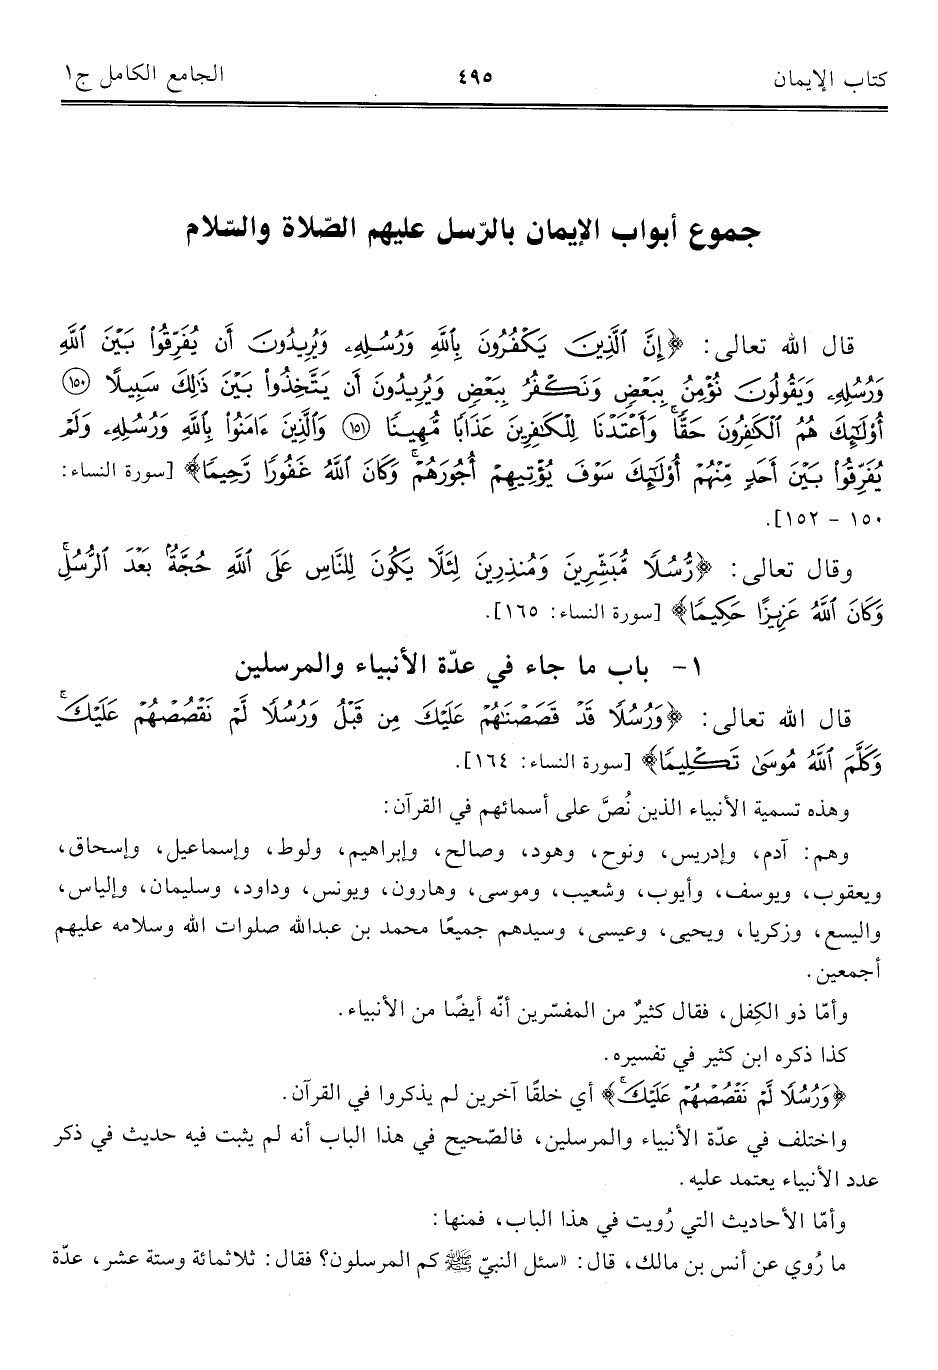 كتاب الإيمان ٤٩٥ الجامع الكامل ج١
جموع أبواب الإيمان بالرّسل عليهم الصّلاة والسّلام
قال الله تعالى: ﴿إِنَّ ٱلَّذِينَ يَكْفُرُونَ بِٱللَّهِ وَرُسُلِهِۦ وَيُرِيدُونَ أَن يُفَرِّقُوا۟ بَيْنَ ٱللَّهِ
وَرُسُلِهِۦ وَيَقُولُونَ نُؤْمِنُ بِبَعْضٍ وَنَكْفُرُ بِبَعْضٍ وَيُرِيدُونَ أَن يَتَّخِذُوا۟ بَيْنَ ذَٰلِكَ سَبِيلًا ١٥٠
أُو۟لَٰٓئِكَ هُمُ ٱلْكَٰفِرُونَ حَقًّا ۚ وَأَعْتَدْنَا لِلْكَٰفِرِينَ عَذَابًا مُّهِينًا ١٥١ وَٱلَّذِينَ ءَامَنُوا۟ بِٱللَّهِ وَرُسُلِهِۦ وَلَمْ
يُفَرِّقُوا۟ بَيْنَ أَحَدٍ مِّنْهُمْ أُو۟لَٰٓئِكَ سَوْفَ يُؤْتِيهِمْ أُجُورَهُمْ ۗ وَكَانَ ٱللَّهُ غَفُورًا رَّحِيمًا﴾ [سورة النساء:
١٥٠ - ١٥٢].
وقال تعالى: ﴿رُّسُلًا مُّبَشِّرِينَ وَمُنذِرِينَ لِئَلَّا يَكُونَ لِلنَّاسِ عَلَى ٱللَّهِ حُجَّةٌۢ بَعْدَ ٱلرُّسُلِ ۚ
وَكَانَ ٱللَّهُ عَزِيزًا حَكِيمًا﴾ [سورة النساء: ١٦٥].
١- باب ما جاء في عدّة الأنبياء والمرسلين
قال الله تعالى: ﴿وَرُسُلًا قَدْ قَصَصْنَٰهُمْ عَلَيْكَ مِن قَبْلُ وَرُسُلًا لَّمْ نَقْصُصْهُمْ عَلَيْكَ ۚ
وَكَلَّمَ ٱللَّهُ مُوسَىٰ تَكْلِيمًا﴾ [سورة النساء: ١٦٤].
وهذه تسمية الأنبياء الذين نُصَّ على أسمائهم في القرآن:
وهم: آدم، وإدريس، ونوح، وهود، وصالح، وإبراهيم، ولوط، وإسماعيل، وإسحاق،
ويعقوب، ويوسف، وأيوب، وشعيب، وموسى، وهارون، ويونس، وداود، وسليمان، وإلياس،
واليسع، وزكريا، ويحيى، وعيسى، وسيدهم جميعًا محمد بن عبدالله صلوات الله وسلامه عليهم
أجمعين.
وأمّا ذو الكِفل، فقال كثيرٌ من المفسّرين أنّه أيضًا من الأنبياء.
كذا ذكره ابن كثير في تفسيره.
﴿وَرُسُلًا لَّمْ نَقْصُصْهُمْ عَلَيْكَ ۚ﴾ أي خلقًا آخرين لم يذكروا في القرآن.
واختلف في عدّة الأنبياء والمرسلين، فالصّحيح في هذا الباب أنه لم يثبت فيه حديث في ذكر
عدد الأنبياء يعتمد عليه.
وأمّا الأحاديث التي رُويت في هذا الباب، فمنها:
ما رُوي عن أنس بن مالك، قال: «سئل النبيّ ﷺ كم المرسلون؟ فقال: ثلاثمائة وستة عشر، عدّة